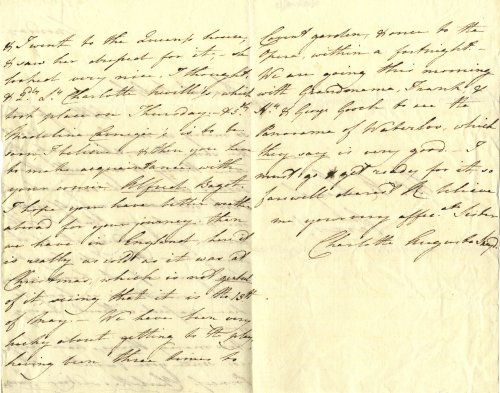 & I went to the Queen's house,
& saw her dressed for it, – she
looked very nice, I thought,
& Ly. Charlotte which
took place on Thursday, &
is to be
soon I believe & then you have
to make acquaintance with
your cousin Alfred Bagot.
I hope you have better weather
abroad for your journey than
we have in England, here it
is really as cold as it was at
Christmas, which is not
of it seeing that it is the 13th
of May. – We have been very
lucky about getting to the play
having been three times to
Covent garden, & once to the
Opera, within a fortnight –
We are going this morning
with Grandmama, Frank &
& Goch to see the
Panorama of Waterloo, which
they say is very good. I
must go & get ready for it, so
farewell dearest believe
me your very affec.ate Sister
Charlotte Augusta